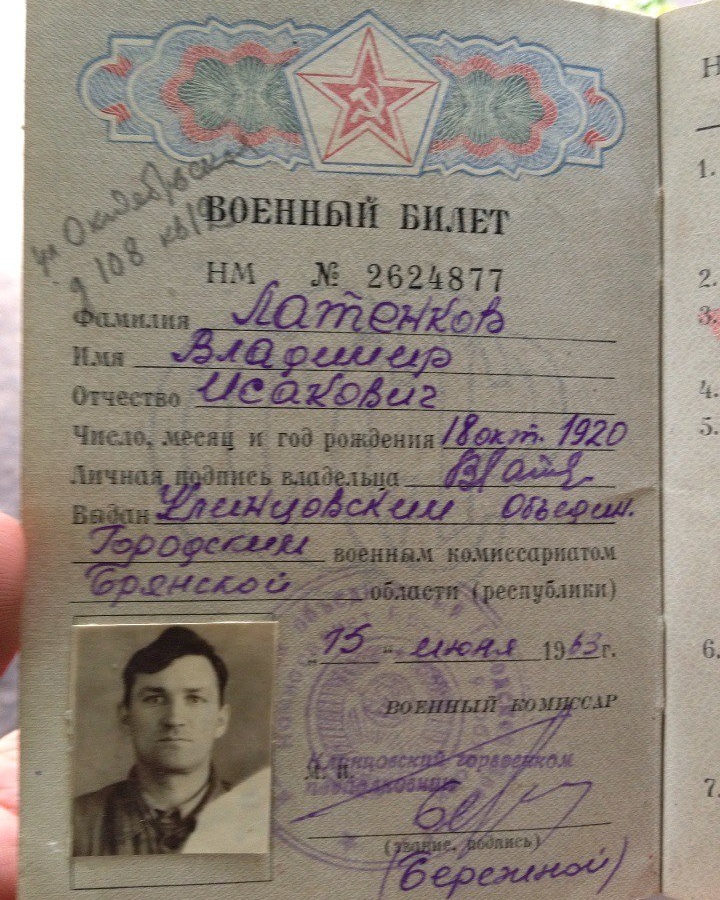 ул Октябрьская
д 108 кв
ВОЕННЫЙ БИЛЕТ
НМ № 2624877
Фамилия Латенков
Имя Владимир
Отчество Исакович
Число, месяц и год рождения 18 окт. 1920
Личная подпись владельца
Выдан Клинцовским Объедин.
Городским военным комиссариатом
Брянской области (республики)
„15“ июня 1963 г.
ВОЕННЫЙ КОМИССАР
Клинцовский горвоенком
М. П. подполковник
(звание, подпись)
(Бережной)
Н
1.
2.
3.
4.
5.
6.
7.